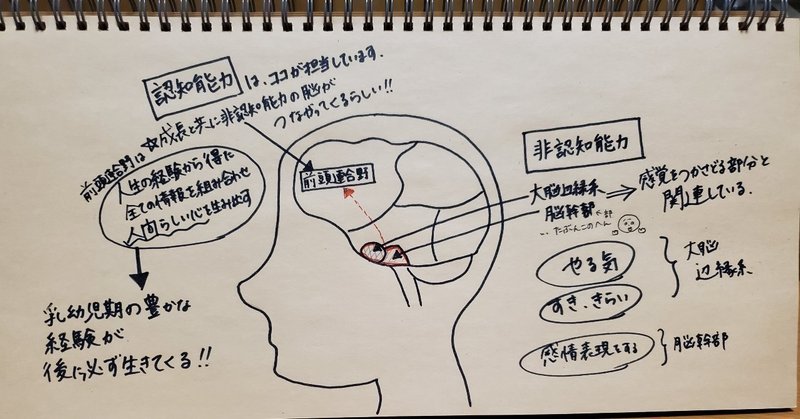 認知能力 は、ココが担当しています.
☆成長と共に非認知能力の脳が
つながってくるらしい!!
前頭連合野は
人生の経験から得た
全ての情報を組み合わせ
人間らしい心を生み出す
乳幼児期の豊かな
経験が
後に必ず生きてくる!!
前頭連合野
非認知能力
大脳辺縁系
脳幹部
感覚をつかさどる部分と
関連している.
…たぶんこのへん
やる気
すき、きらい
大脳
辺縁系
感情表現をする
脳幹部